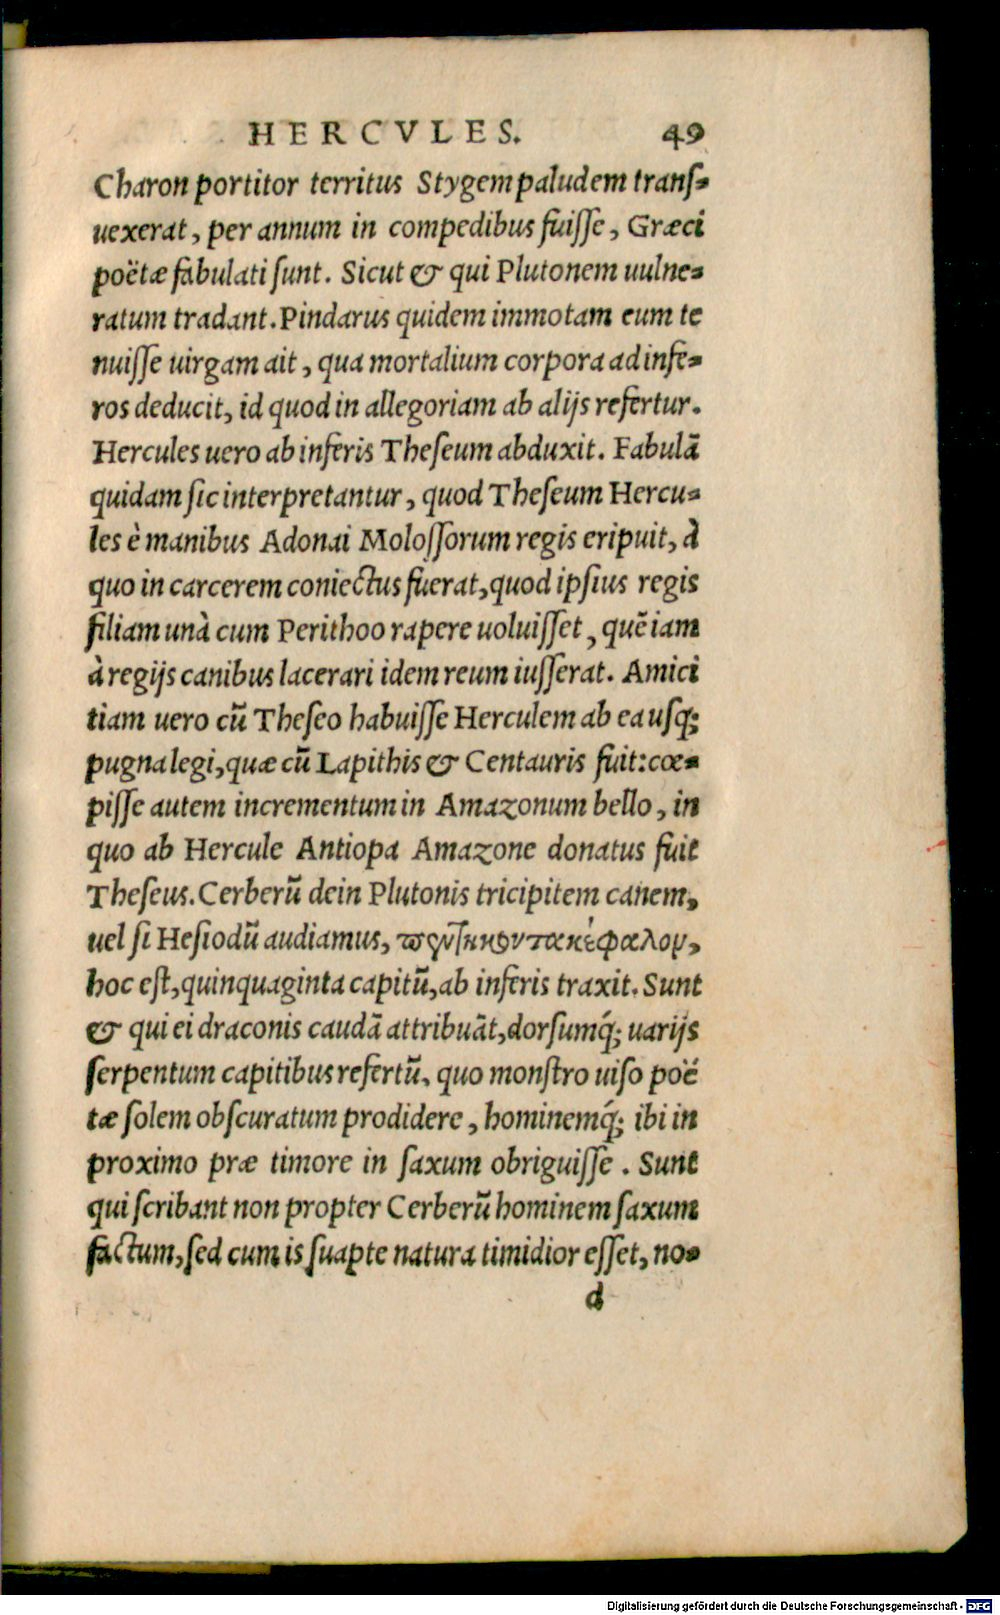 HERCVLES. 49
Charon portitor territus Stygem paludem transf-
uexerat, per annum in compedibus fuisse, Græci
poëtæ fabulati sunt. Sicut & qui Plutonem uulne-
ratum tradant. Pindarus quidem immotam eum te
nuisse uirgam ait, qua mortalium corpora ad infe-
ros deducit, id quod in allegoriam ab alijs refertur.
Hercules uero ab inferis Theseum abduxit. Fabulã
quidam sic interpretantur, quod Theseum Hercu-
les è manibus Adonai Molossorum regis eripuit, à
quo in carcerem coniectus fuerat, quod ipsius regis
filiam unà cum Perithoo rapere uoluisset, quẽ iam
à regijs canibus lacerari idem reum iusserat. Amici
tiam uero cũ Theseo habuisse Herculem ab ea usq;
pugna legi, quæ cũ Lapithis & Centauris fuit: cœ-
pisse autem incrementum in Amazonum bello, in
quo ab Hercule Antiopa Amazone donatus fuit
Theseus. Cerberũ dein Plutonis tricipitem canem,
uel si Hesiodũ audiamus,
hoc est, quinquaginta capitũ, ab inferis traxit. Sunt
& qui ei draconis caudã attribuãt, dorsumq́; uarijs
serpentum capitibus refertũ, quo monstro uiso poë
tæ solem obscuratum prodidere, hominemq́; ibi in
proximo præ timore in saxum obriguisse. Sunt
qui scribant non propter Cerberũ hominem saxum
factum, sed cum is suapte natura timidior esset, no-
d
Digitalisierung gefördert durch die Deutsche Forschungsgemeinschaft - DFG